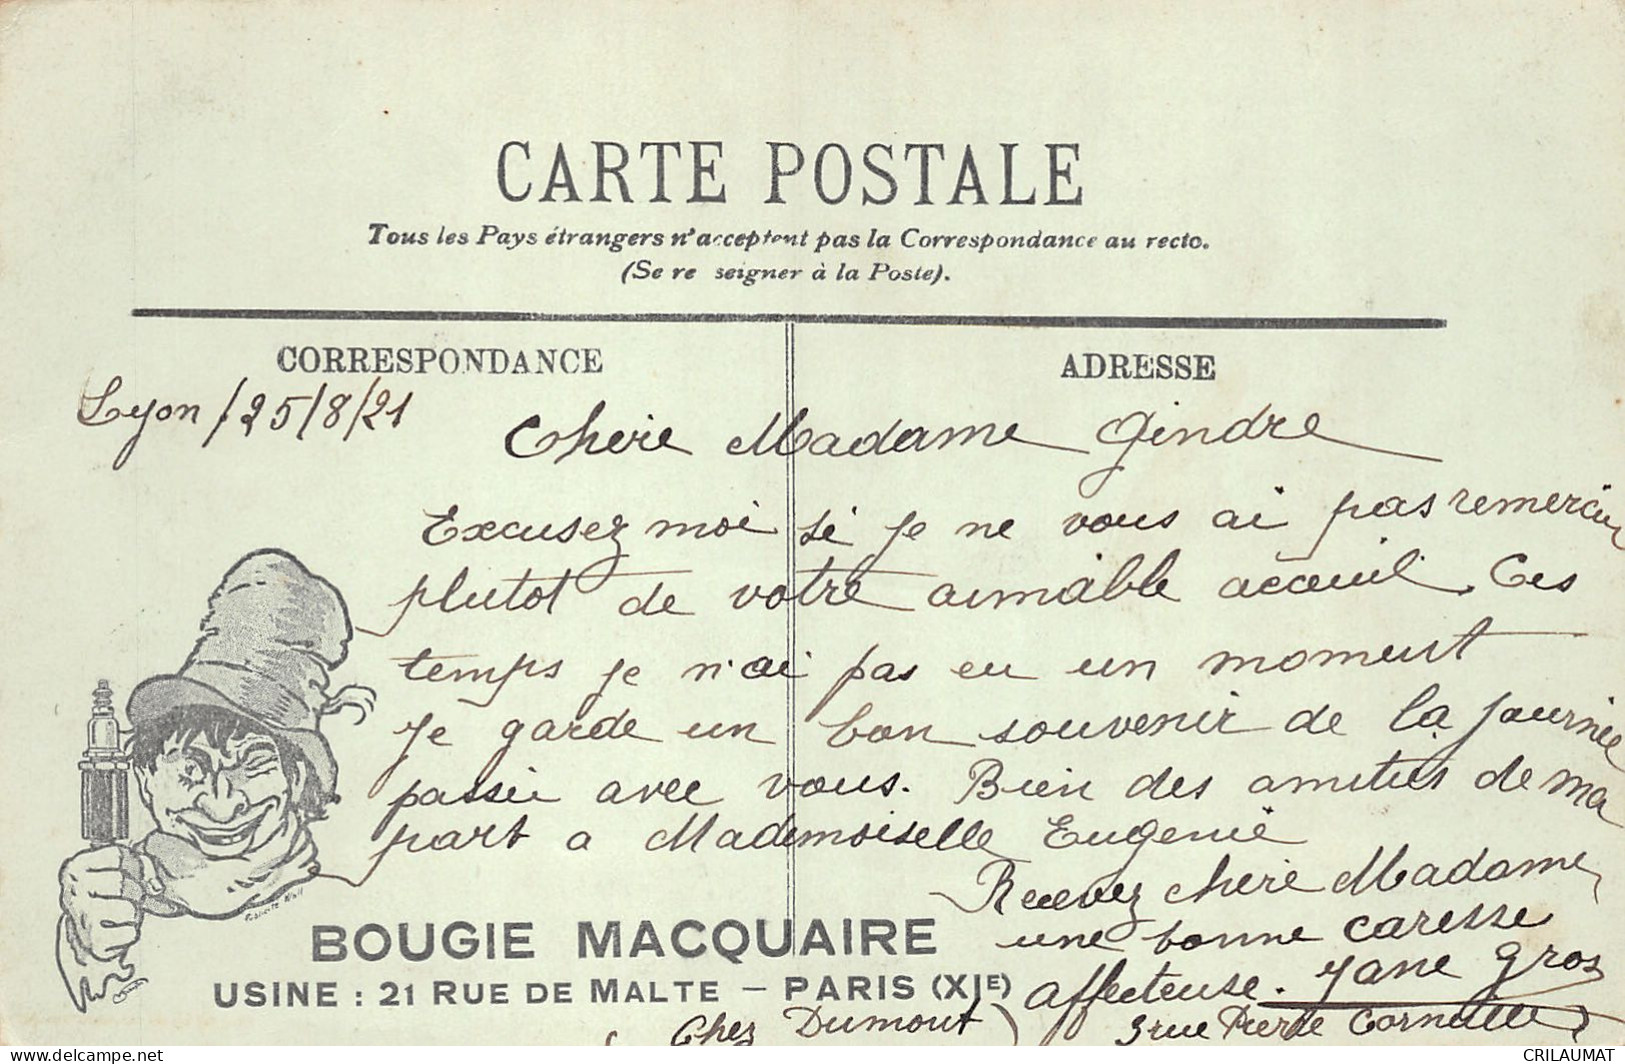 CARTE POSTALE
Tous les Pays étrangers n'acceptent pas la Correspondance au recto.
(Se re seigner à la Poste).
CORRESPONDANCE
ADRESSE
Lyon / 25/8/21
Chère Madame Gindre
Excusez moi si je ne vous ai pas remercier
plutot de votre aimable acceuil. Ces
temps je n'ai pas eu un moment
Je garde un bon souvenir de la journée
passée avec vous. Bien des amities de ma
part a Mademoiselle Eugenie
Recevez chère Madame
une bonne caresse
affecteuse. Jane Gros
(Chez Dumont) 3 rue Pierre Corneille
BOUGIE MACQUAIRE
USINE : 21 RUE DE MALTE — PARIS (XIE)
CRILAUMAT